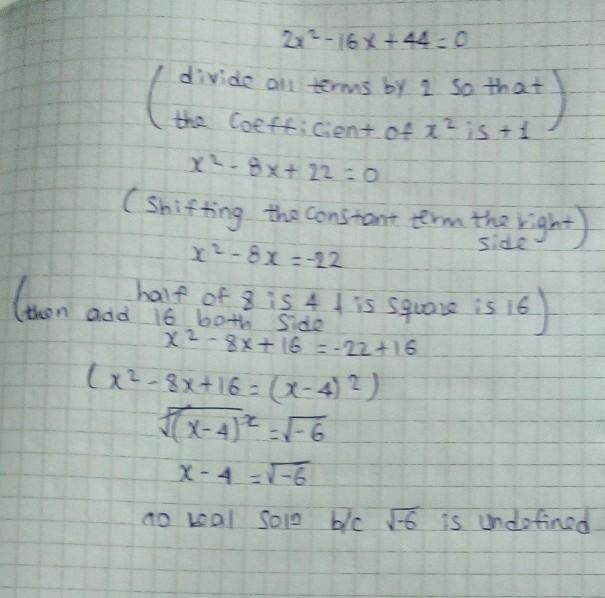 2x² - 16x + 44 = 0
(divide all terms by 2 so that
the Coefficient of x² is +1)
x² - 8x + 22 = 0
(Shifting the constant term the right
side)
x² - 8x = -22
(half of 8 is 4 & is square is 16
then add 16 both side)
x² - 8x + 16 = -22 + 16
(x² - 8x + 16 = (x - 4)²)
√(x - 4)² = √-6
x - 4 = √-6
no real soln b/c √-6 is undefined